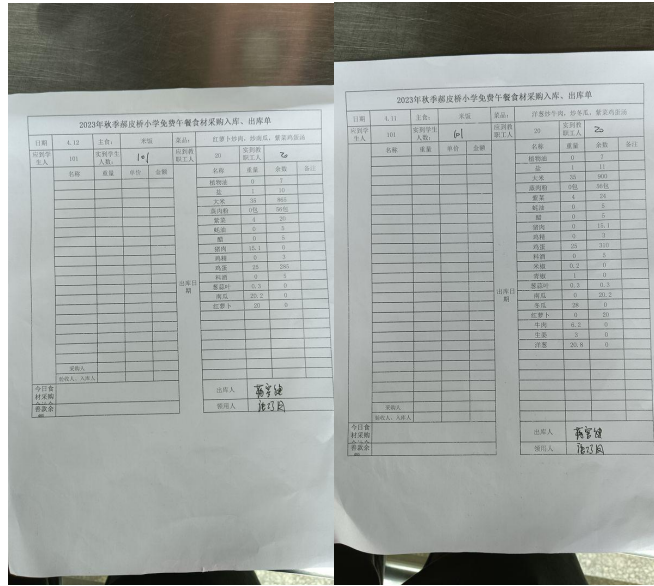 2023年秋季郝皮桥小学免费午餐食材采购入库、出库单
日期 4.12 主食： 米饭 菜品： 红萝卜炒肉，炒南瓜，紫菜鸡蛋汤
应到学生人 101 实到学生人数： 101 应到教职工人 20 实到教职工人 20
名称 重量 单价 金额 出库日期 名称 重量 余数 备注
植物油 0 7
盐 1 10
大米 35 865
蒸肉粉 0包 50包
紫菜 4 20
蚝油 0 5
醋 0 5
猪肉 15.1 0
鸡精 0 3
鸡蛋 25 285
料酒 0 3
葱蒜叶 0.3 0
南瓜 20.2 0
红萝卜 20 0
采购人
验收人、入库人
今日食材采购
出库人
善款余额
领用人
2023年秋季郝皮桥小学免费午餐食材采购入库、出库单
日期 4.11 主食： 米饭 菜品： 洋葱炒牛肉，炒冬瓜，紫菜鸡蛋汤
应到学生人 101 实到学生人数： 101 应到教职工人 20 实到教职工人 20
名称 重量 单价 金额 出库日期 名称 重量 余数 备注
植物油 0 7
盐 1 11
大米 35 900
蒸肉粉 0包 50包
紫菜 4 24
蚝油 0 5
醋 0 5
猪肉 0 15.1
鸡精 0 3
鸡蛋 25 310
料酒 0 3
米椒 0.2 0
青椒 1 0
葱蒜叶 0.3 0.3
南瓜 0 20.2
冬瓜 28 0
红萝卜 0 20
牛肉 6.2 0
生姜 2 0
洋葱 20.8 0
采购人
验收人、入库人
今日食材采购
出库人
善款余额
领用人